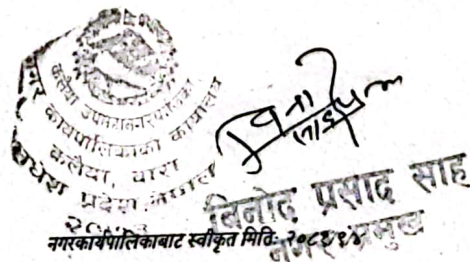 कलैया उपमहानगरपालिका
नगर कार्यपालिकाको कार्यालय
कलैया, बारा
मधेश प्रदेश, नेपाल
बिनोद प्रसाद साह
नगर प्रमुख
नगरकार्यपालिकाबाट स्वीकृत मितिः